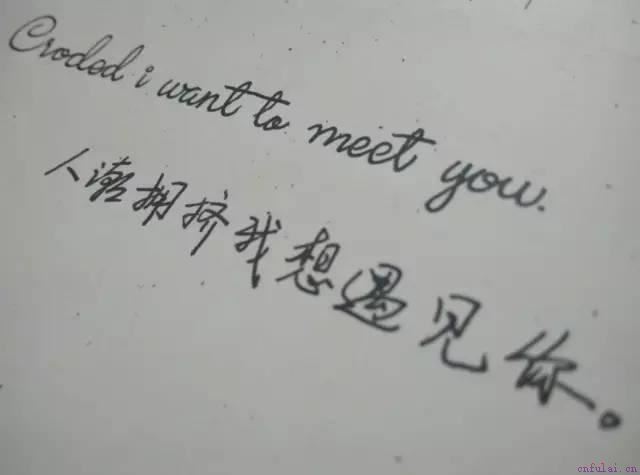 Croded i want to meet you.
人潮拥挤我想遇见你。
cnfulai.cn